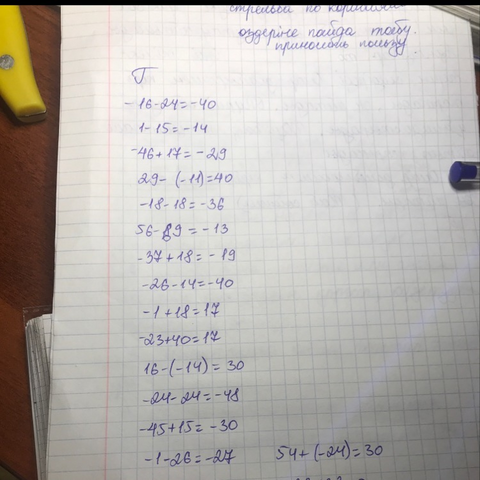 оздеріне пайда табу.
приносить пользу.
Г
-16-24=-40
1-15=-14
-46+17=-29
29-(-11)=40
-18-18=-36
56-69=-13
-37+18=-19
-26-14=-40
-1+18=17
-23+40=17
16-(-14)=30
-24-24=-48
-45+15=-30
-1-26=-27 54+(-24)=30